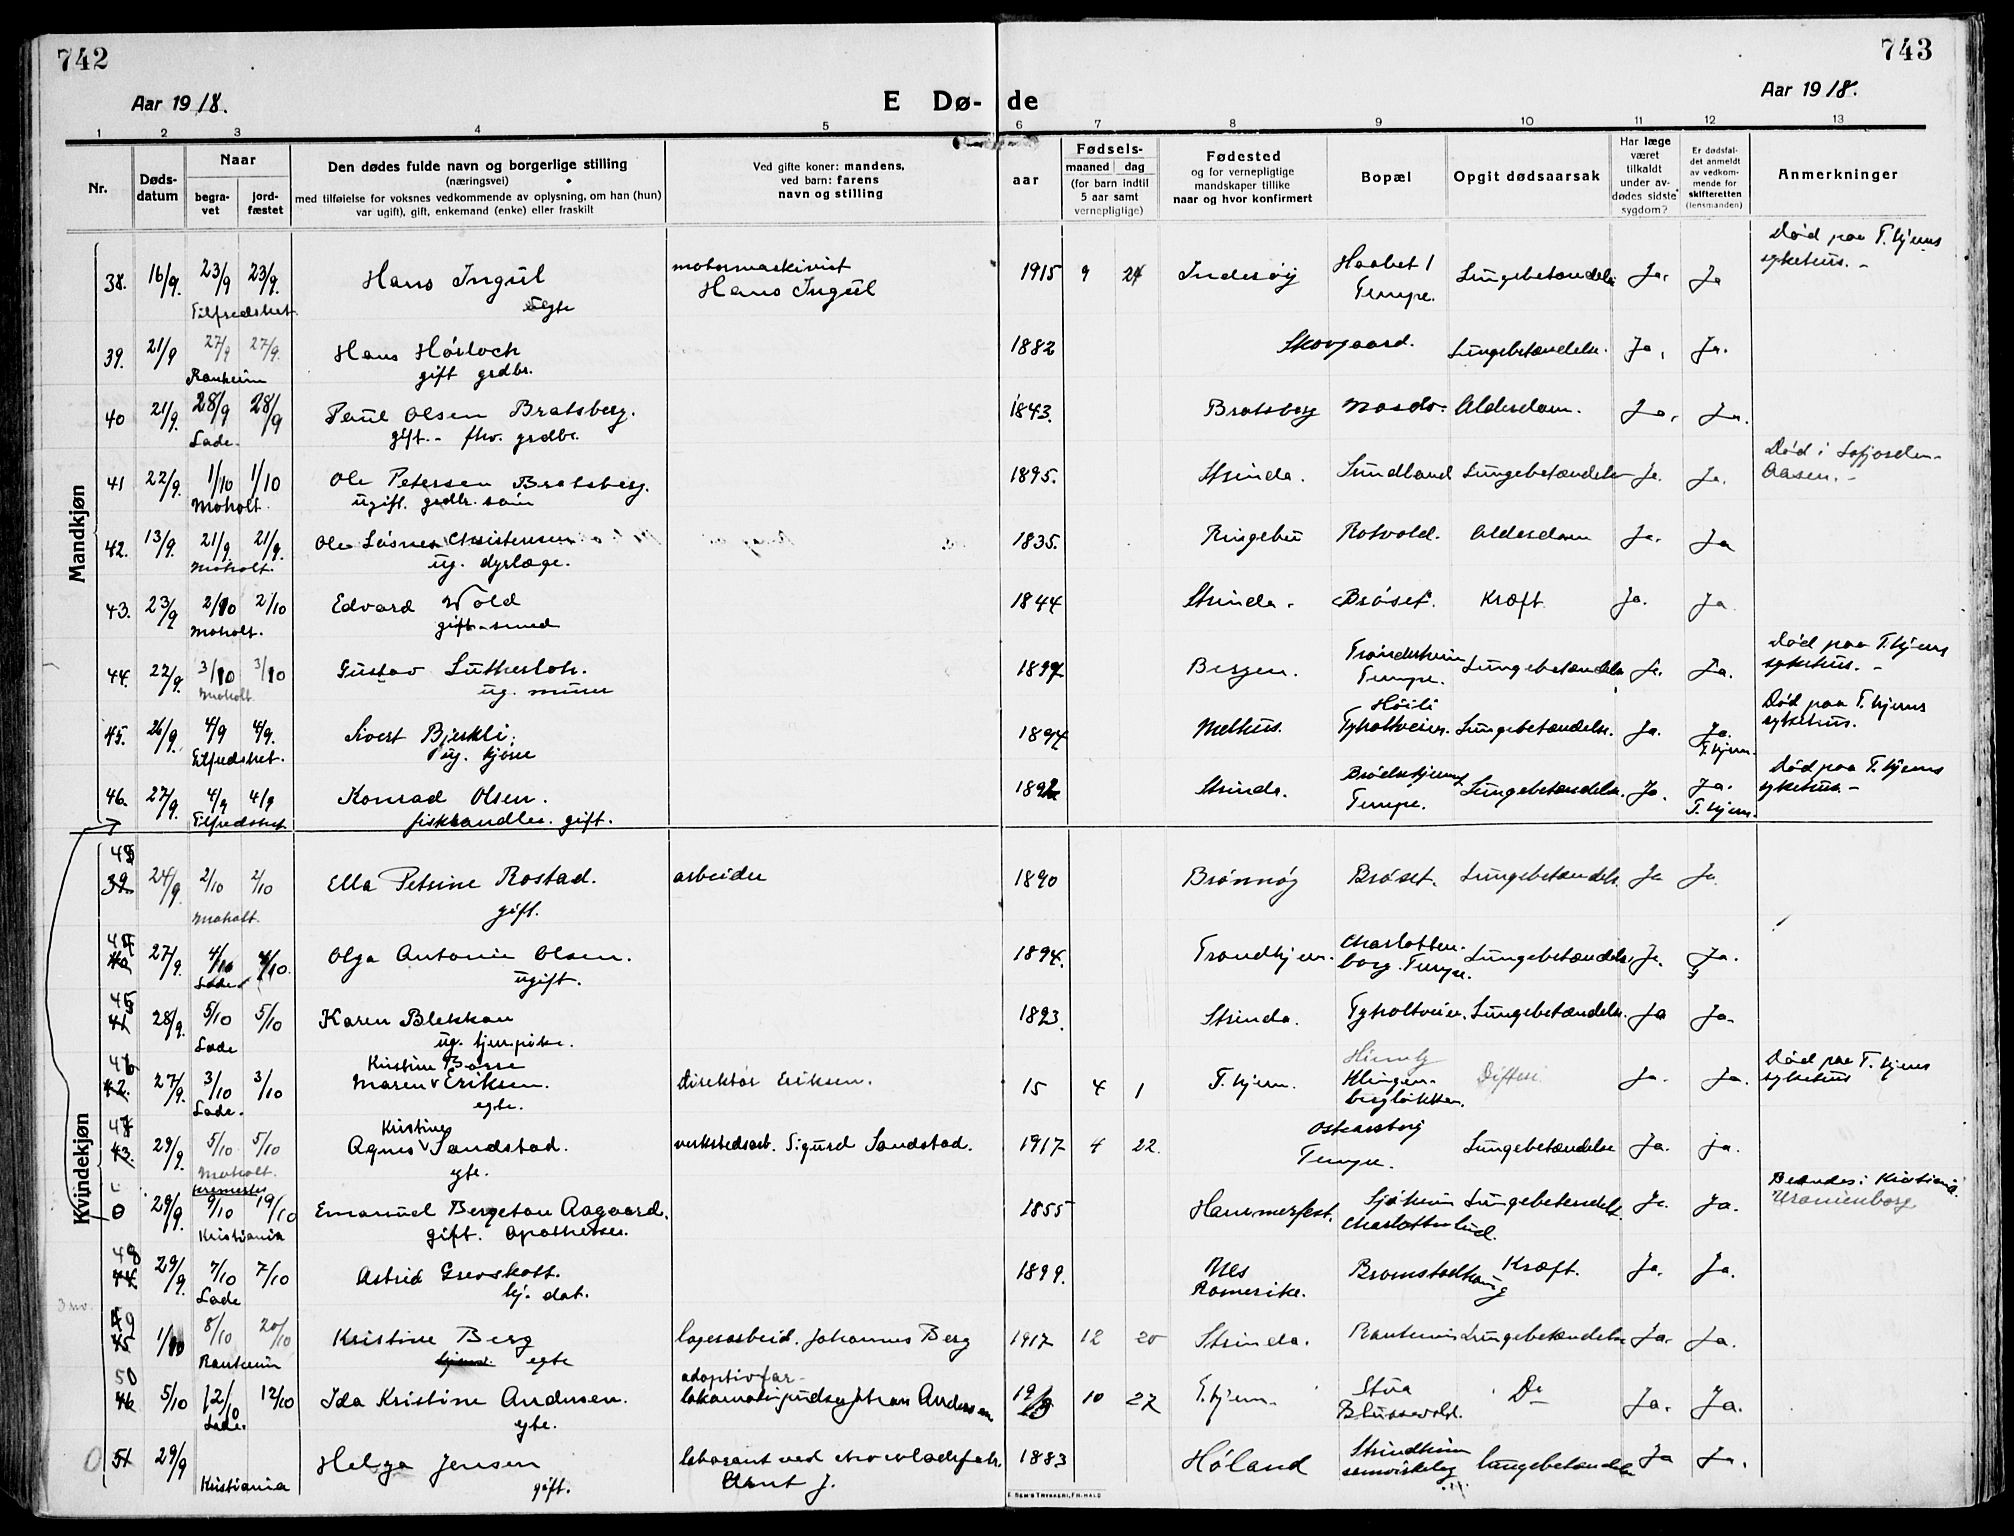 742
743
Aar 1918.
E Dø-
de
Aar 1918.
1 2 3 4 5 6 7 8 9 10 11 12 13
Nr.
Døds-
datum
Naar
begra-
vet
jord-
fæstet
Den dødes fulde navn og borgerlige stilling
(næringsvei)
med tilføielse for voksnes vedkommende av oplysning, om han (hun)
var ugift), gift, enkemand (enke) eller fraskilt
Ved gifte koner: mandens,
ved barn: farens
navn og stilling
Fødsels-
aar
maaned
dag
(for barn indtil
5 aar samt
vernepligtige)
Fødested
og for vernepligtige
mandskaper tillike
naar og hvor konfirmert
Bopæl
Opgit dødsaarsak
Har læge
været
tilkaldt
under av-
dødes sidste
sygdom?
Er dødsfal-
det anmeldt
av vedkom-
mende for
skifteretten
(lensmanden)
Anmerkninger
Mandkjøn
Død paa T.hjems
38. 16/9. 23/9 23/9. Hans Ingul motormaskinist 1915 9 24 Inderøy Haabet 1 Lungebetændelse Ja. Ja sykehus. -
Tilfredshet. Hans Ingul Tempe.
Uegte
39. 21/9 27/9 27/9. Hans Hårloch 1882 Skovgaard. Lungebetændelse. Ja. Ja.
Ranheim gift grdbr.
40 21/9. 28/9 28/9 Paul Olsen Bratsberg. 1843. Bratsberg Alderdom. Ja. Ja.
Lade. gift. - fhv. grdbr.
Død i
41 22/9. 1/10 1/10 Ole Petersen Bratsberg. 1895. Strinda. Sundland Lungebetændelse Ja. Ja. Aasen. -
Moholt. ugift. grdbr. søn
42. 13/9. 21/9. 21/9. Ole Christensen 1835. Ringebu Rotvold. Alderdom Ja. Ja
Moholt. ug. dyrlæge.
43. 23/9 2/10 2/10 Edvard Wold 1844 Strinda. Brøset. Kræft Ja. Ja
Moholt. gift - smed
Død paa T.hjems
44. 22/9. 3/10 3/10 Gustav 1897 Bergen. Trondheim Lungebetændelse Ja. Ja. sykehus. -
Moholt ug. murer Tempe.
Høili Død paa T.hjems
45. 26/9. 4/9 4/9. Sivert Bjerkli. 1894 Melhus. Tyholtveien. Lungebetændelse. Ja. Ja. sykehus.
Tilfredshet. ug. T.hjem.
Død paa T.hjems
46. 27/9. 4/9 4/9 Konrad Olsen. 1892 Strinda. Lungebetændelse. Ja. Ja. sykehus. -
Tilfredshet fiskhandler. gift. Tempe. T.hjem.
Kvindekjøn
43
39 24/9 2/10 2/10 Ella Petrine Rostad. arbeider 1890 Brønnøy Brøset. Lungebetændels. Ja Ja.
Moholt. gift.
44
40 27/9. 4/10 4/10. Olga Antonie Olsen. 1894. Trondhjem. Charlotten- Lungebetændels. Ja. Ja.
Lade. ugift. borg. Tempe.
45
41 28/9. 5/10 5/10 Karen Blekkan 1893. Strinda. Tyholtveien. Lungebetændelse. Ja Ja.
Lade ug. tjen.pike.
46 Kristine Børre Død paa T.hjems
42. 27/9. 3/10 3/10 Maren Eriksen. direktør Eriksen. 15 4 1 T.hjem. Klingen- Difteri Ja. Ja. sykehus
Lade. egte. bergløkken.
47 Kristine
43. 29/9. 5/10 5/10 Agnes Sandstad. verkstedsarb. Sigurd Sandstad. 1917 4 22. Oskarsborg Lungebetændelse Ja. ja.
Moholt. egte. Tempe.
kremeres Bisættes i Kristiania
0 29/9. 9/10 19/10 Emanuel Bergetou Aagaard. 1855 Hammerfest. Sjøheim Lungebetændels. Ja. Ja. Uranienborg
Kristiania gift. Apotheker. Charlottenlund.
48
44. 29/9. 7/10 7/10 Astrid Grevskott. 1899. Nes Bromstadhaug Kræft. Ja. Ja.
Lade hj. dat. Romerike.
49
45 1/10 8/10 20/10 Kristine Berg lagerarbeid. Johannes Berg 1917 12 20 Strinda. Ranheim Lungebetændelse Ja. Ja.
Ranheim egte
50 adoptivfar-
46 5/10 12/10 12/10 Ida Kristine Andersen. Johan Andersen 10 27 T.hjem. Stua Do Ja. Ja.
Lade. egte. Blussevold.
0 51 29/9 Helga Jensen laborant ved chocoladefabr. 1883 Høland Strindheim Lungebetændelse Ja Ja.
Kristiania gift. Arnt J. samvirkelag
E. SEM'S TRYKKERI, FR.HALD